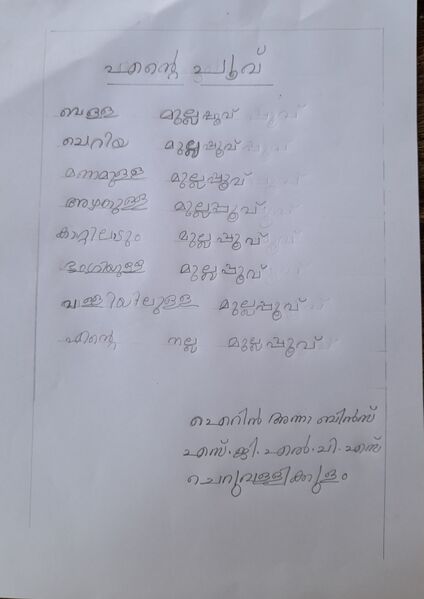 എന്റെ പൂവ്
വെള്ള മുല്ലപ്പൂവ്
ചെറിയ മുല്ലപ്പൂവ്
മണമുള്ള മുല്ലപ്പൂവ്
അഴകുള്ള മുല്ലപ്പൂവ്
കാറ്റിലാടും മുല്ലപ്പൂവ്
ഭംഗിയുള്ള മുല്ലപ്പൂവ്
വള്ളിയിലുള്ള മുല്ലപ്പൂവ്
എന്റെ നല്ല മുല്ലപ്പൂവ്
അന്നാ ബിൻസ്
എസ്.ജി.എൽ.പി.എസ്
ചെറുവള്ളിക്കുളം